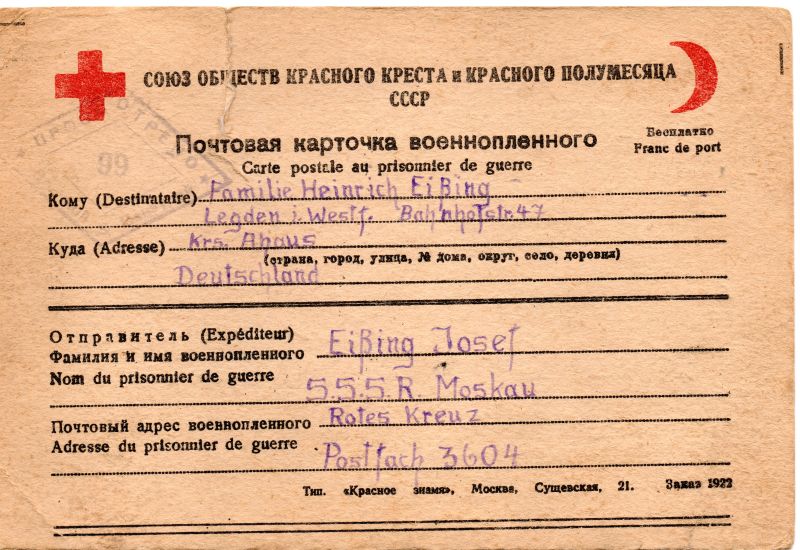 СОЮЗ ОБЩЕСТВ КРАСНОГО КРЕСТА и КРАСНОГО ПОЛУМЕСЯЦА
СССР
Почтовая карточка военнопленного
Carte postale au prisonnier de guerre
Бесплатно
Franc de port
99
Кому (Destinataire) Familie Heinrich Eißing
Legden i. Westf. Bahnhofstr. 47
Куда (Adresse) Krs. Ahaus
(страна, город, улица, № дома, округ, село, деревня)
Deutschland
Отправитель (Expéditeur)
Фамилия и имя военнопленного Eißing Josef
Nom du prisonnier de guerre
S.S.S.R. Moskau
Почтовый адрес военнопленного Rotes Kreuz
Adresse du prisonnier de guerre
Postfach 3604
Тип. «Красное знамя», Москва, Сущевская, 21. Заказ 1922